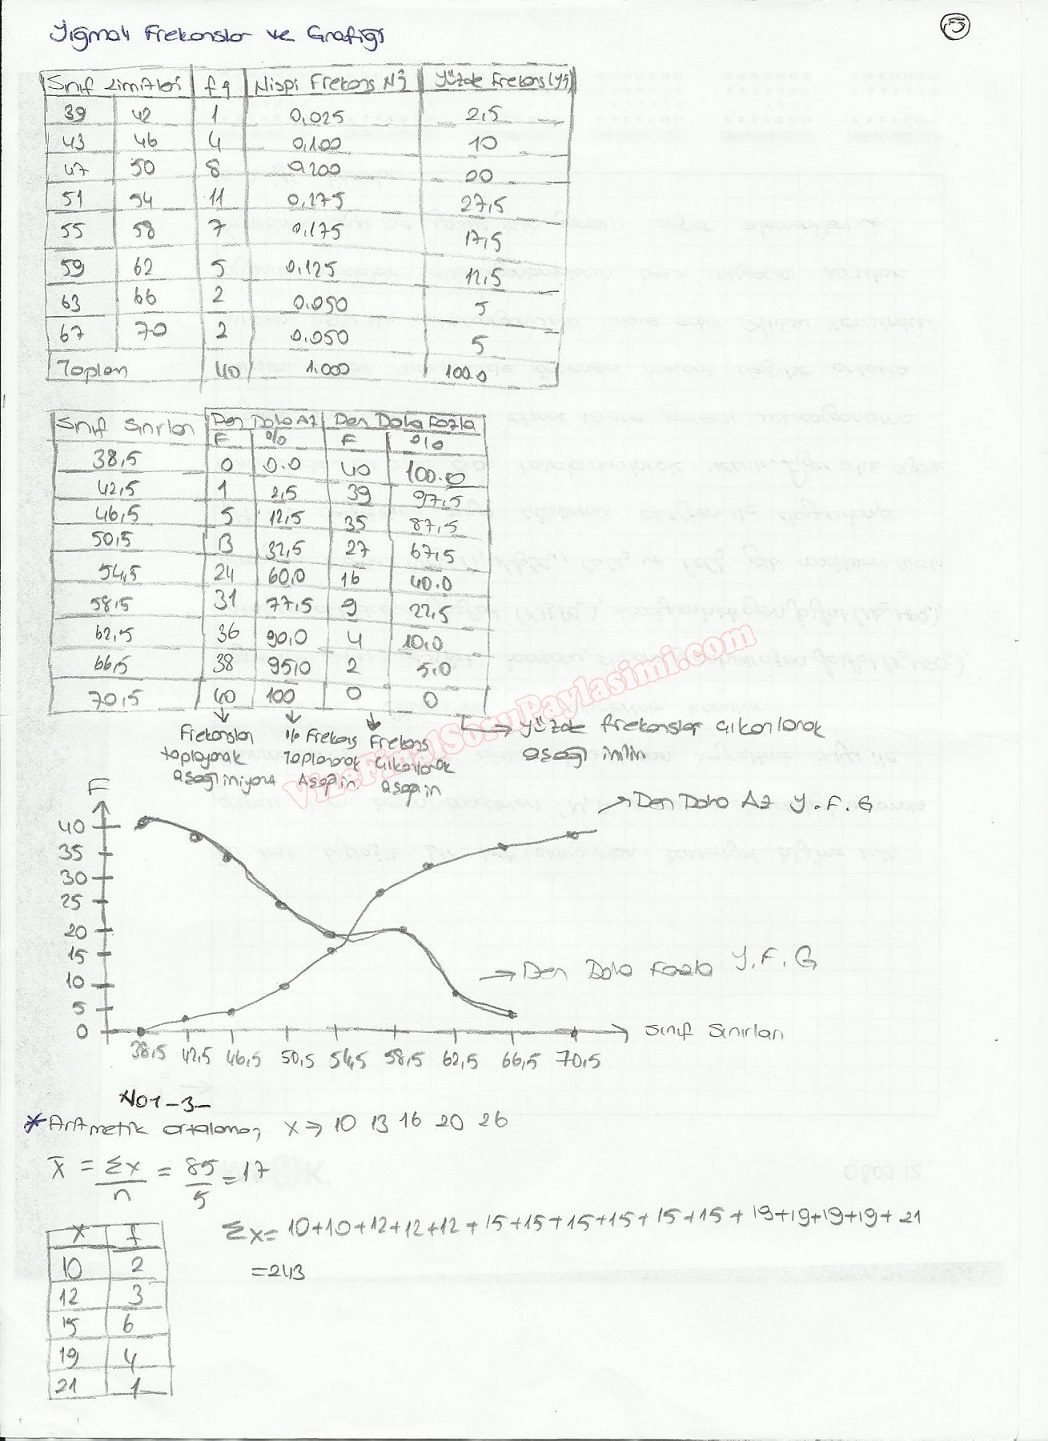 Yığmalı Frekanslar ve Grafiği
5
Sınıf Limitleri fi Nispi Frekans Ni Yüzde Frekans (Yi)
39 42 1 0,025 2,5
43 46 4 0,100 10
47 50 8 0,200 20
51 54 11 0,275 27,5
55 58 7 0,175 17,5
59 62 5 0,125 12,5
63 66 2 0.050 5
67 70 2 0.050 5
Toplam 40 1.000 100.0
Sınıf Sınırları Den Daha Az Den Daha Fazla
F % F %
38,5 0 0.0 40 100.0
42,5 1 2,5 39 97,5
46,5 5 12,5 35 87,5
50,5 13 32,5 27 67,5
54,5 24 60,0 16 40.0
58,5 31 77,5 9 22,5
62,5 36 90,0 4 10,0
66,5 38 95,0 2 5,0
70,5 40 100 0 0
Frekansları toplayarak aşağı iniyoruz
% Frekans Toplanarak Aşağı in
Frekans Çıkarılarak aşağı in
yüzde frekanslar çıkarılarak aşağı inilir
VizeFinalSoruPaylasimi.com
F
→ Den Daha Az Y.F.G
40
35
30
25
20
15
10
5
0
→ Den Daha Fazla Y.F.G
Sınıf Sınırları
38,5 42,5 46,5 50,5 54,5 58,5 62,5 66,5 70,5
Not-3-
* Aritmetik ortalama; x → 10 13 16 20 26
x̄ = Σx/n = 85/5 = 17
x f
10 2
12 3
15 6
19 4
21 1
Σx = 10+10+12+12+12+15+15+15+15+15+15+19+19+19+19+21
=243